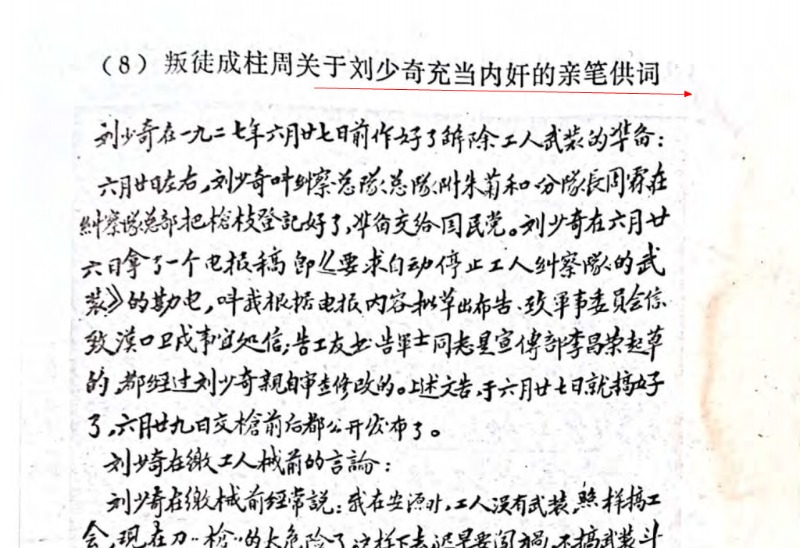 （8）叛徒成柱周关于刘少奇充当内奸的亲笔供词
刘少奇在一九二七年六月廿七日前作好了解除工人武装的準备：
六月廿日左右，刘少奇叫糾察总隊总隊附朱菊和分隊長周霖在
糾察隊总部把槍枝登記好了，準备交给囯民党。刘少奇在六月廿
六日拿了一个电报稿 即《要求自动停止工人糾察隊的武
装》的勘电，叫我根据电报内容拟草出布告、致軍事委員会信、
致漢口卫戍事宜处信；告工友书、告軍士同志是宣傳部李昌荣起草
的，都经过刘少奇親自审查修改的。上述文告，于六月廿七日就搞好
了，六月廿九日交槍前后都公开发布了。
刘少奇在缴工人械前的言論：
刘少奇在缴械前经常説：我在安源时，工人没有武装，照样搞工
会，现在刀、槍的太危险了，这样下去迟早要闯祸，不搞武装斗